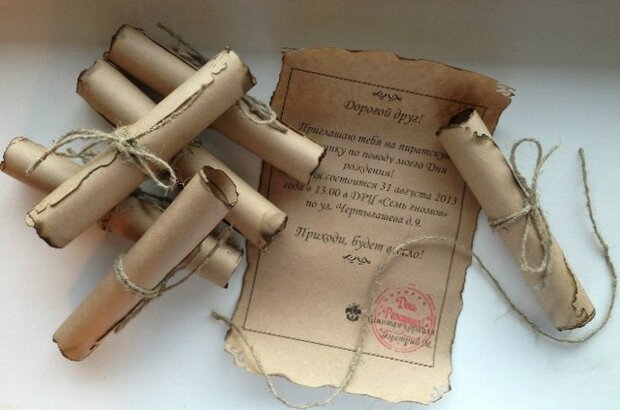 Дорогой друг!
Приглашаю тебя на пиратскую
по поводу моего Дня
рождения!
состоится 31 августа 2013
года в 13.00 в ДРЦ «Семь гномов»
по ул. Чертыгашева д.9.
Приходи, будет весело!
День
Рождения
Капитан корабля
Дмитрий М.